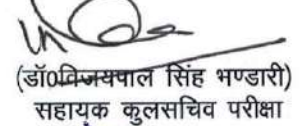 (डॉ0विजयपाल सिंह भण्डारी)
सहायक कुलसचिव परीक्षा